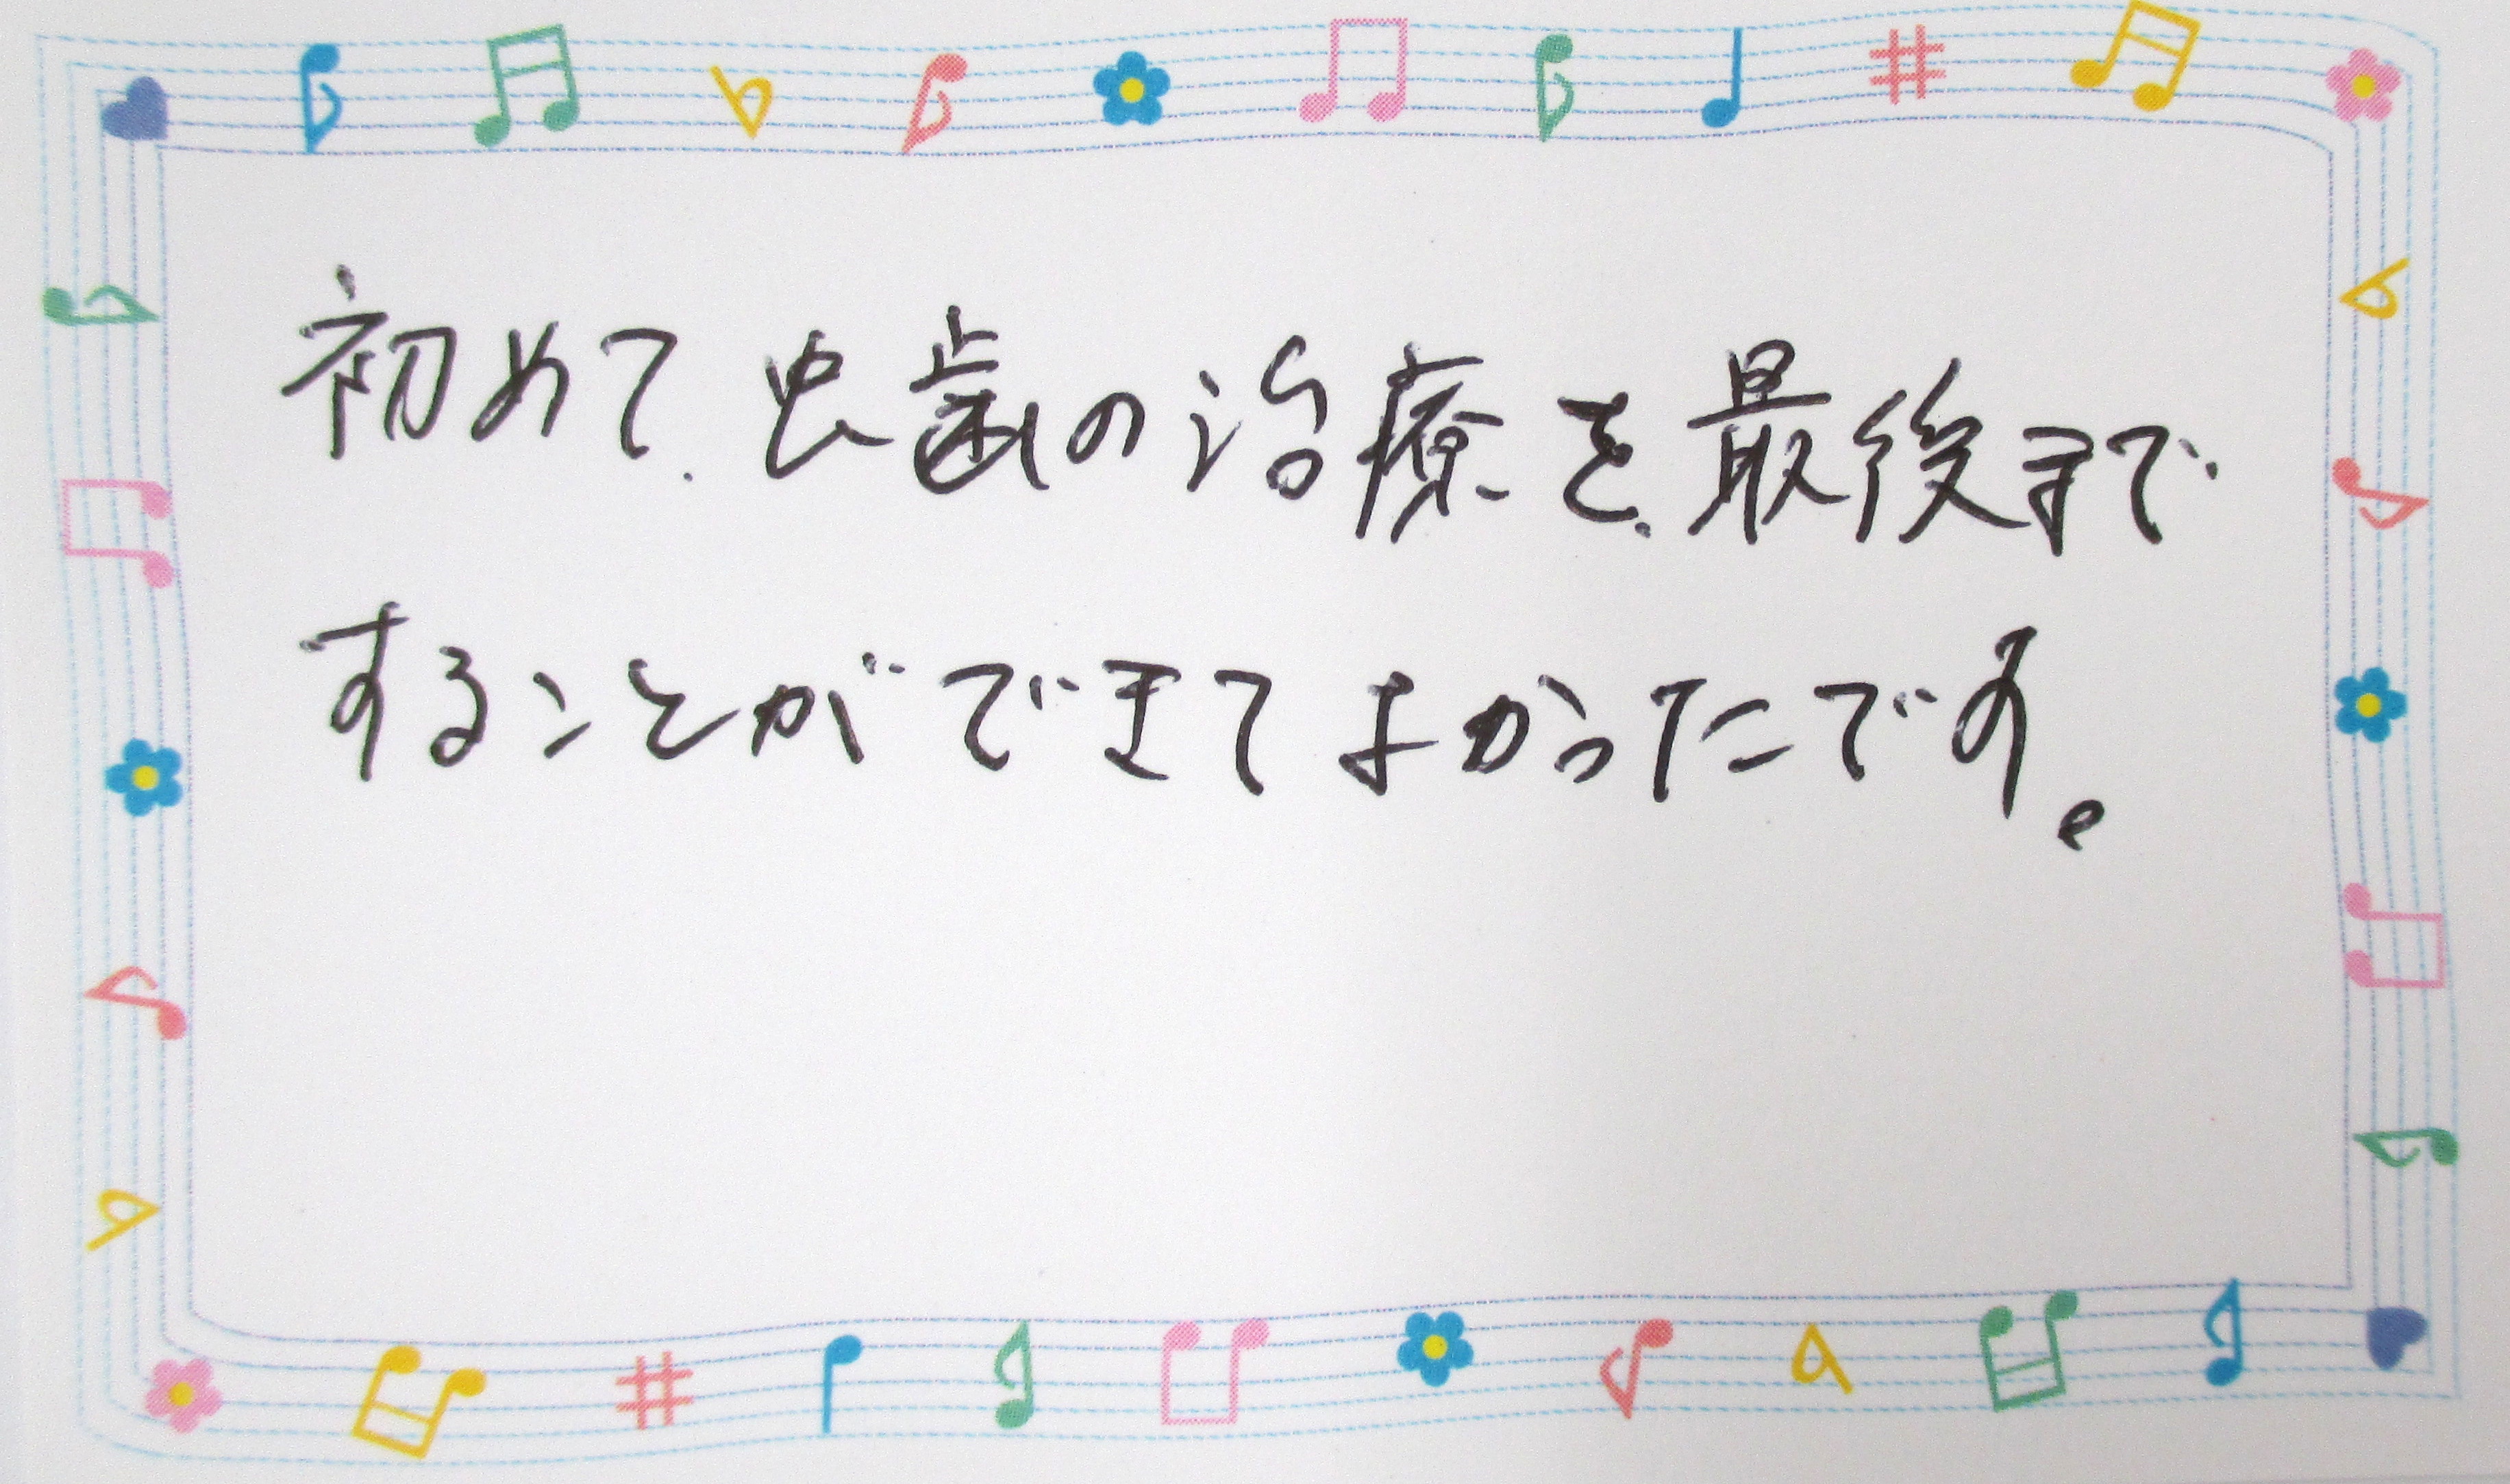 初めて、虫歯の治療を、最後まで
することができてよかったです。